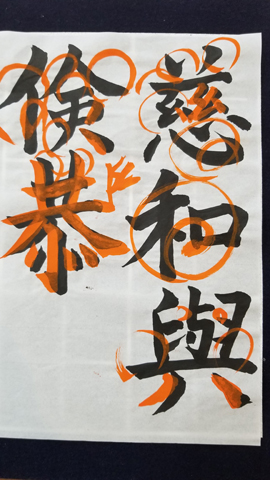 慈和與
倹恭